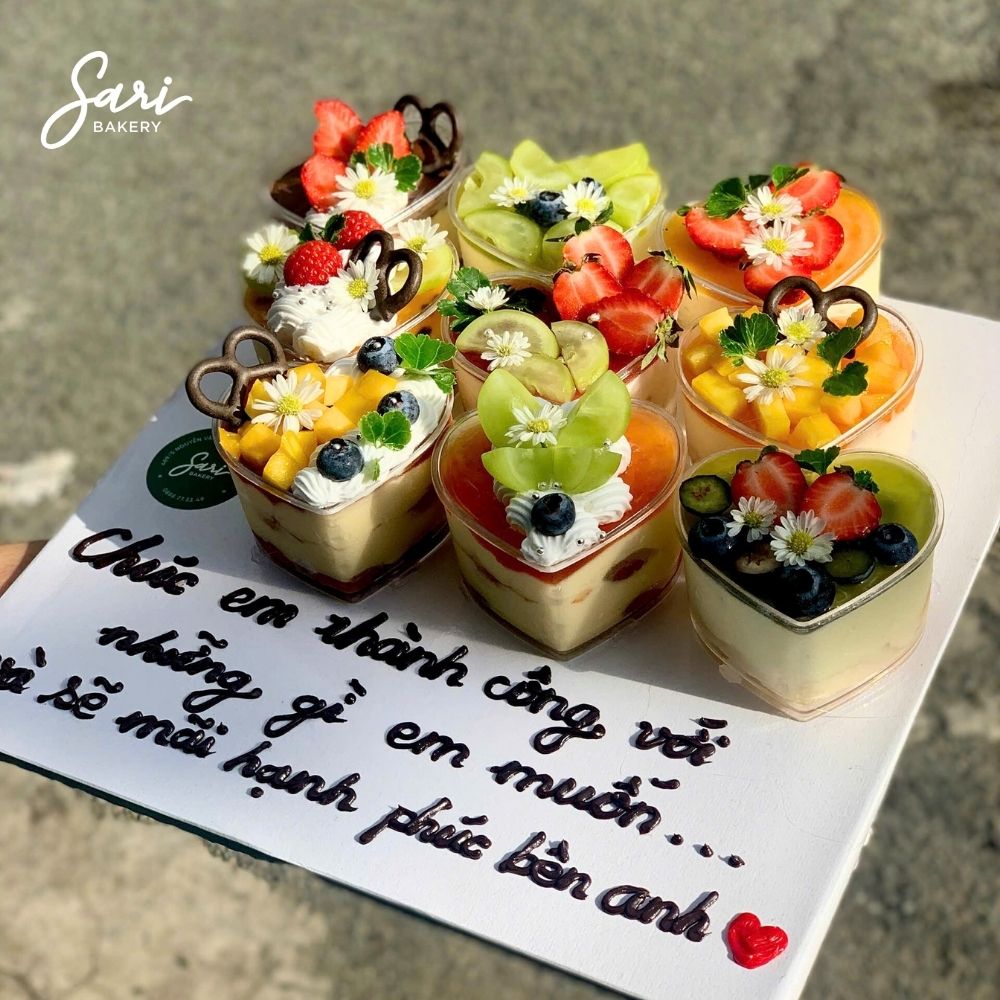 Sari
BAKERY
Sari
BAKERY
Chúc em thành công với
những gì em muốn...
và sẽ mãi hạnh phúc bên anh